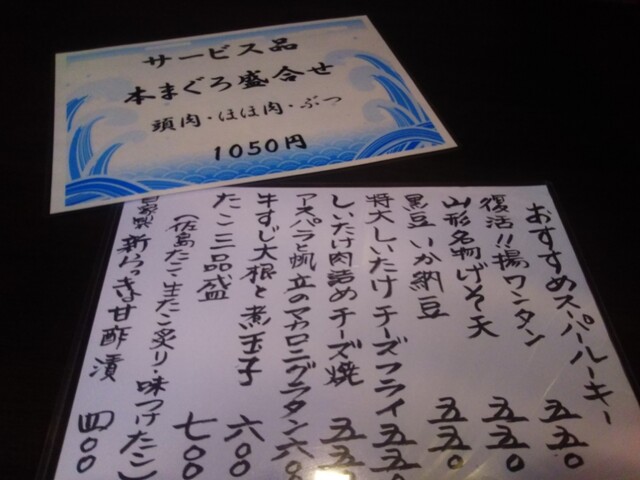 サービス品
本まぐろ盛合せ
頭肉・ほほ肉・ぶつ
1050円
おすすめスーパールーキー
復活!!揚ワンタン 五五〇
山形名物げそ天 五五〇
黒豆いか納豆 五五〇
特大しいたけチーズフライ 五五
しいたけ肉詰めチーズ焼 五五
アスパラと帆立のマカロニグラタン 六〇
牛すじ大根と煮玉子 六〇〇
たこ三品盛 七〇〇
(佐島たこ・生たこ炙り・味つけたこ)
自家製 新らっきょ甘酢漬 四〇〇